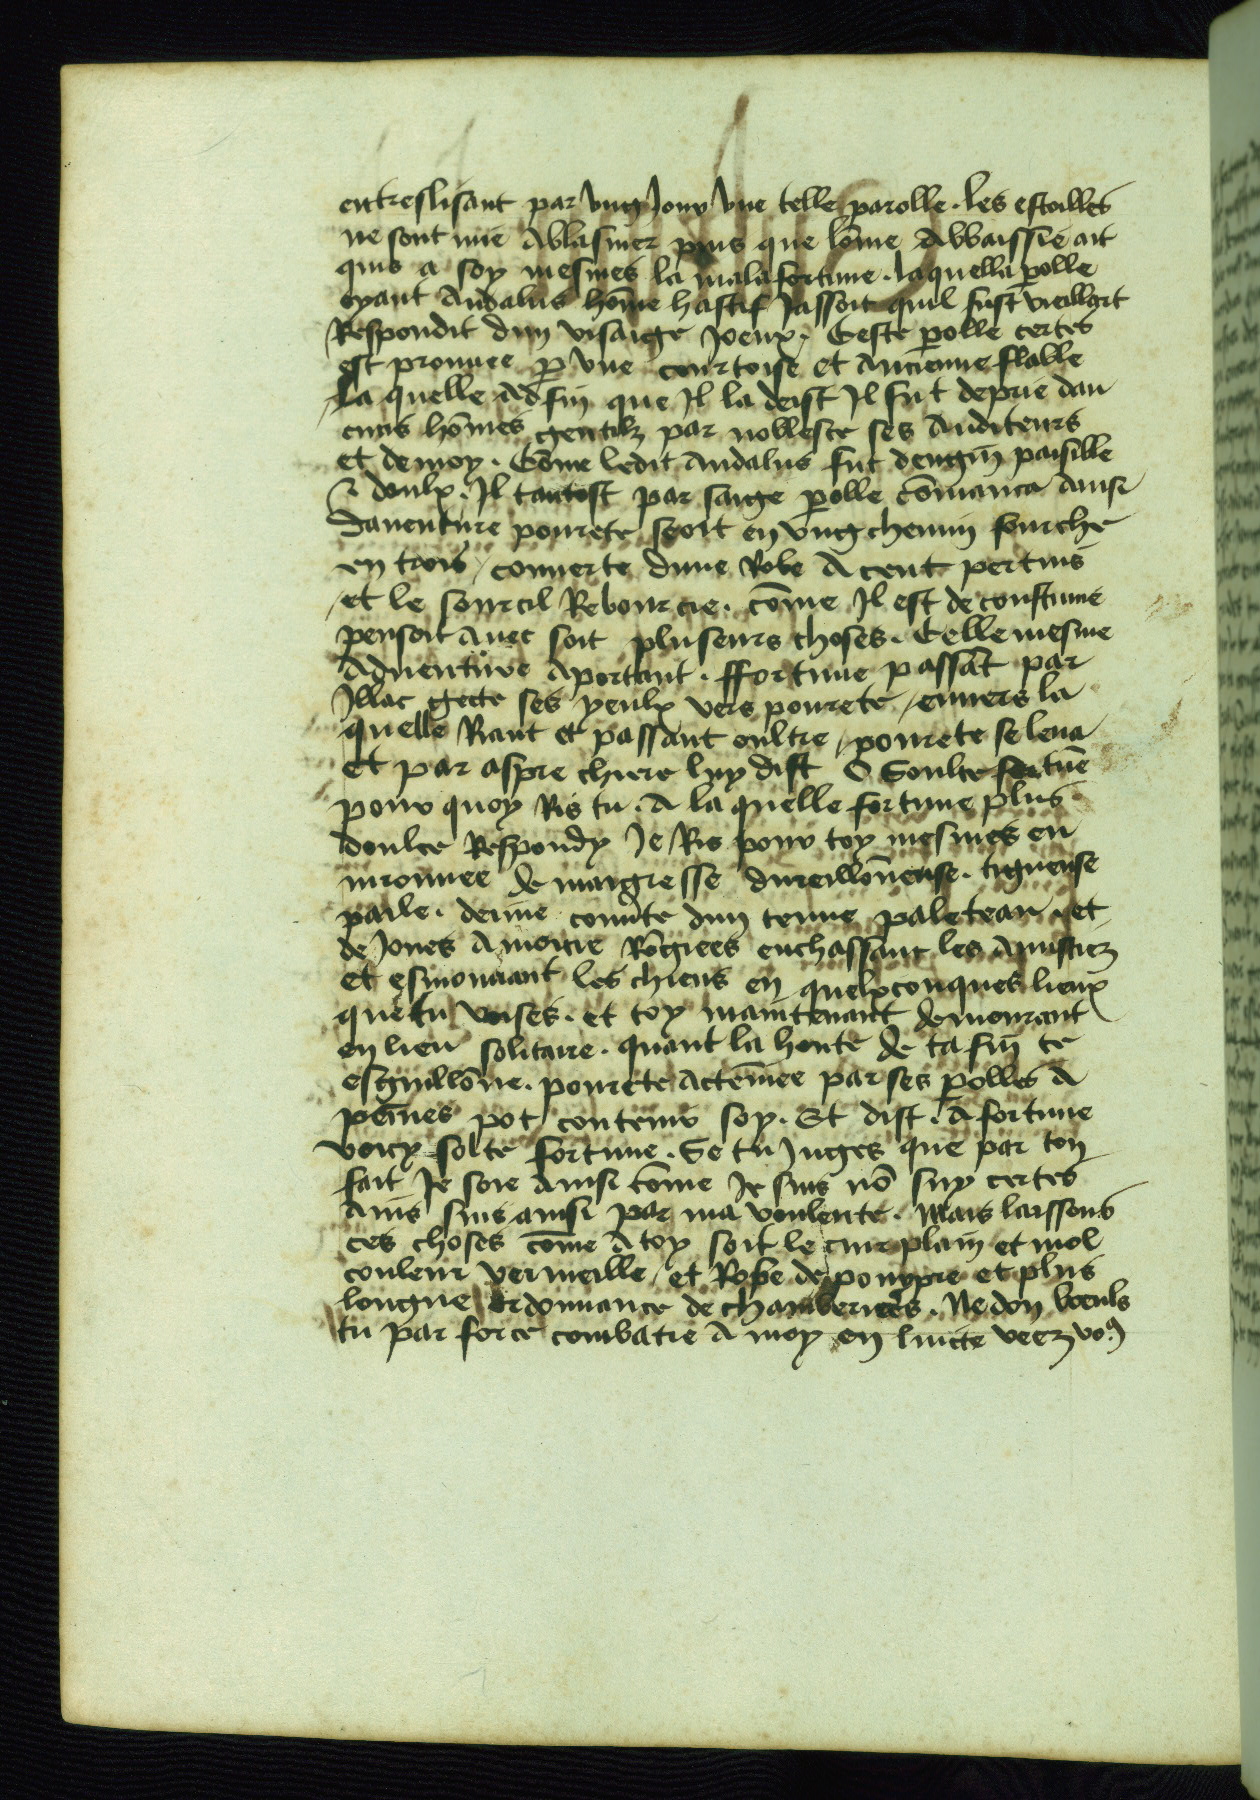 entreslisant par vng Jour vne telle parolle . les estoilles
ne sont mie Ablasmer puis que lōme Abbaissie ait
quis a soy mesmes la mala fortune . laquella polle
oyant Andalus hōme hastif Jassoit quil fust vieillart
Respondit dun visaige Joeux . Ceste polle certes
est prouuee p vne courtoise et Ancienne flable
La quelle Ad fin que Il la deist Il fut deprie dau
cuns hōmes gentilz par noblesce ses Auditeurs
et de moy . Cōme ledit Andalus fut dengin paisille
& doulx . Il tantost par saige polle cōmanca Ainsi
Dauenture pourete seoit en vng chemin fourche
en trois / couuerte dune Robe A cent pertuis
/ et le sourcil Rebource . cōme Il est de coustume
pensoit auec soit pluseurs choses . Celle mesme
Aduenture Aportant . ffortune passāt par
Illac gecte ses yeulx vers pourete / enuers la
quelle Riant et passant oultre / pourete se leua
et par aspre chiere luy dist O Soulte fortūe
pour quoy Ris tu . A la quelle fortune plus
doulce Respondy Je Ris pour toy mesmes en
uironnee de maigresse dureillōneuse . tigneuse
palle . demie couuerte dun tenue paleteau . et
de Joues A moitie Rōgiees enchassant les Amistiez
et esmouuant les chiens en quelxconques lieux
que tu voises . et toy maintenant demourant
en lieu solitaire . quant la honte de ta fin te
esguillōne . pourete actēmee par ses polles A
peīnes pot contenir soy . Et dist . A fortune
voire solte fortune . Se tu Juges que par ton
fait Je soie Ainsi cōme Je suis nō suy certes
Ains suis ainsi par ma voulente . Mais laissons
ces choses cōme A toy soit le cuir plain et mol
couleur vermeille / et Robe de pourpre et plus
longue ordonnance de chamberieres . Ne don voeuls
tu par force combatre A moy en luicte veez vo9